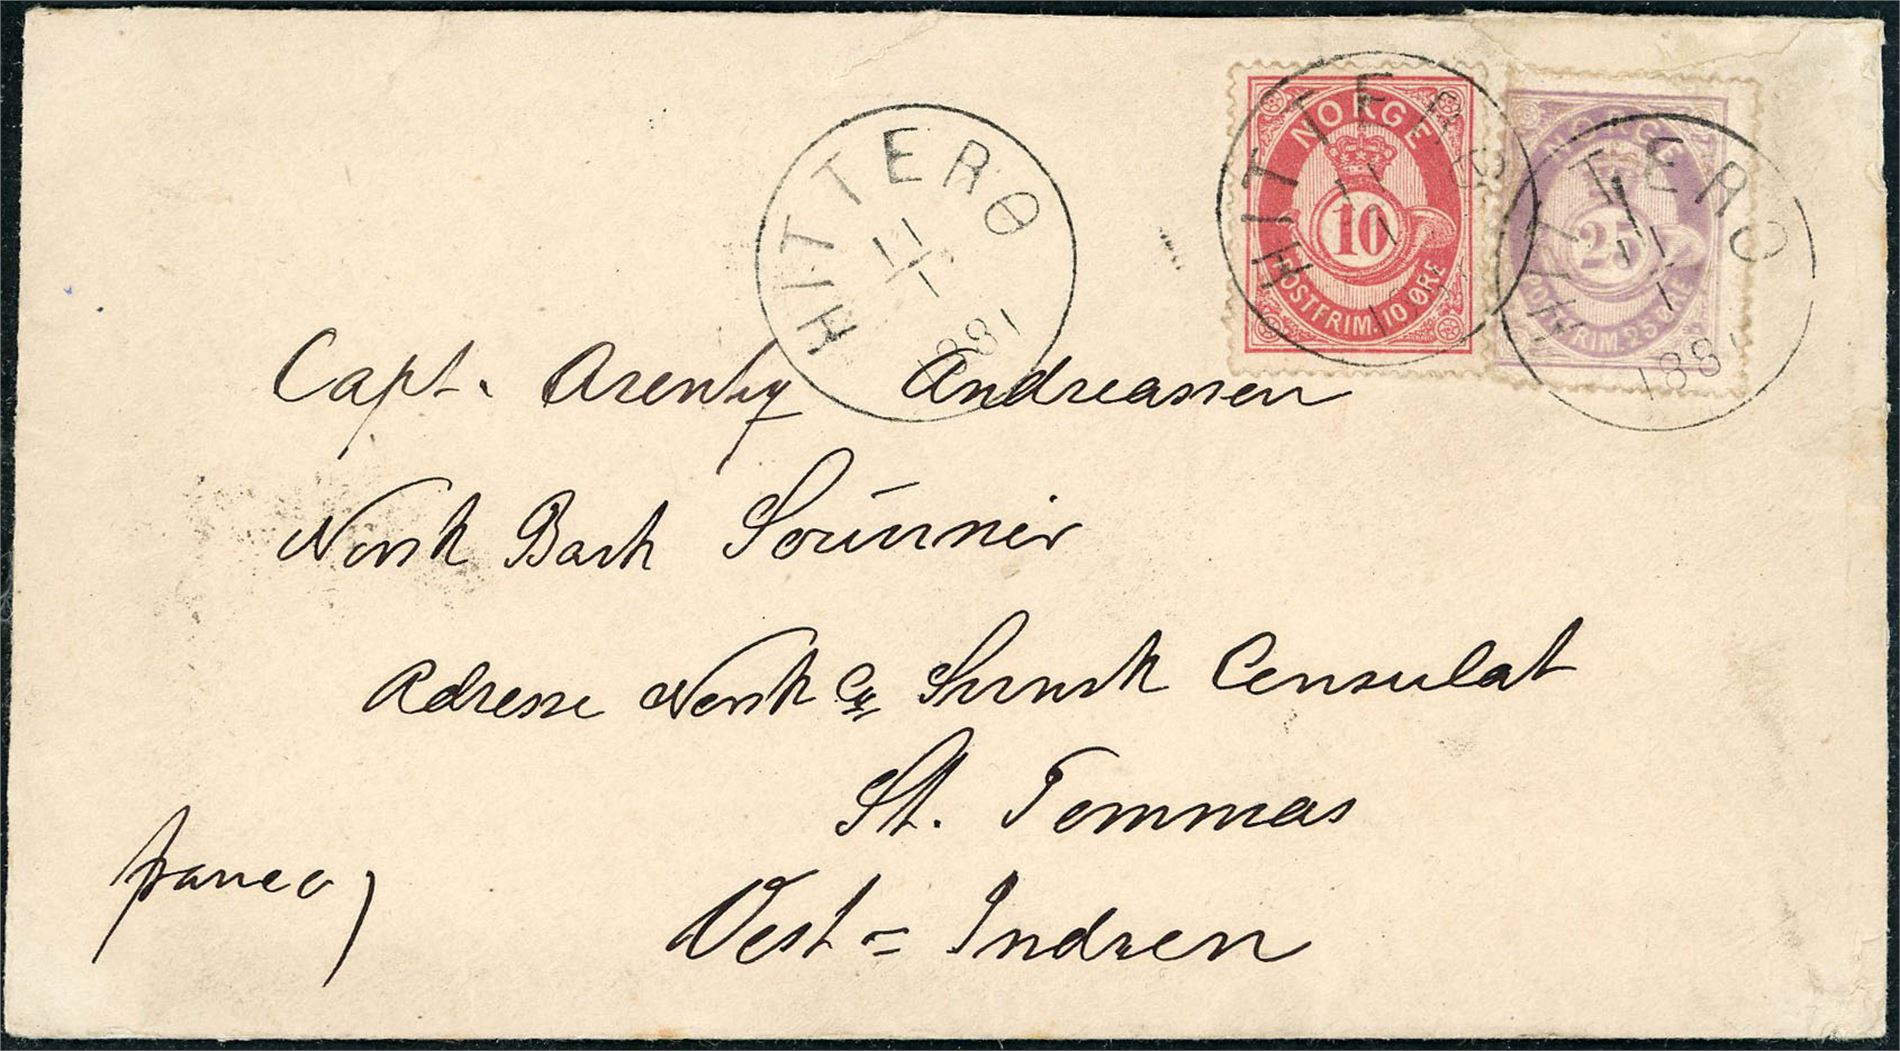 HITTERØ
11
1
1881
NORGE
10
POSTFRIM. 10 ØRE
HITTERØ
11
1
NORGE
25
POSTFRIM. 25 ØRE
HITTERØ
11
1
1881
Capt. Arentz Andreassen
Norsk Bark
Adresse Norsk & Svensk Consulat
St. Tommas
franco)
Vest = Indien